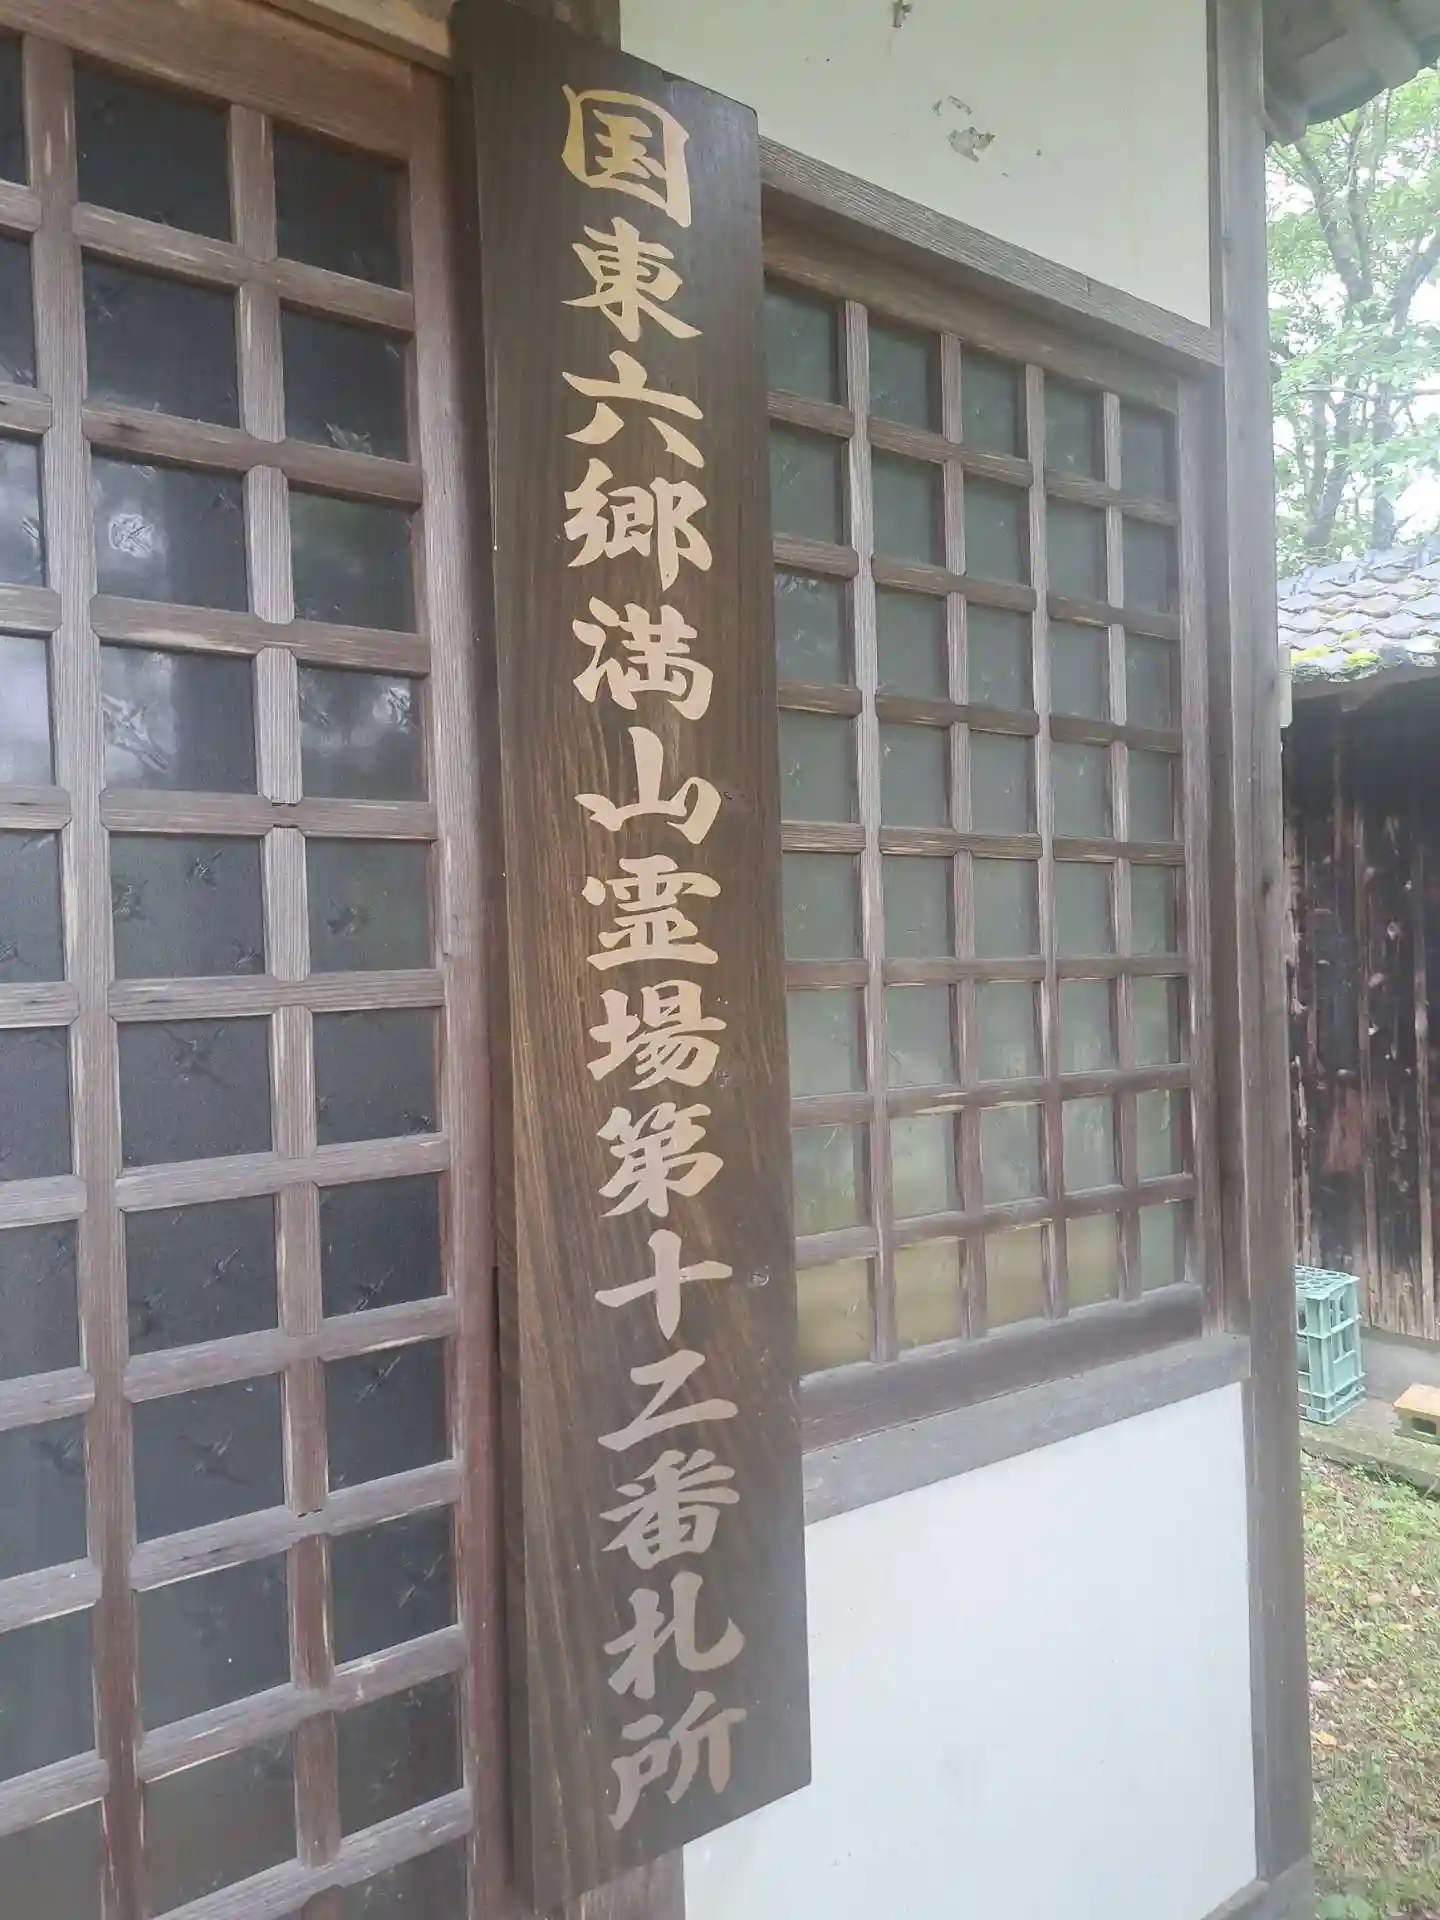 国東六郷満山霊場第十二番札所